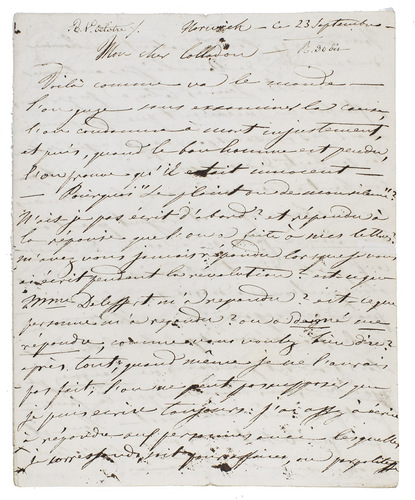 R. le 8 octobre /. Norwich - ce 23 Septembre -
Mon cher Colladon R. Dobis
Voilà comme va le monde -
l'on juge sans examiner la cause
l'on condamne à mort injustement,
et puis, quand le bon homme est pendu,
l'on trouve qu'il était innocent -
- Pourquoi se plaint ou
N'ai je pas écrit d'abord? et répondu à
la réponse que l'on a fait à mes lettres?
m'avez vous jamais répondu lorsque je vous
ai écrit pendant la révolution? est ce que
Mme Delessert m'a répondu? est-ce que
personne m'a répondu? on a daigné me
répondre, comme vous voulez bien dire?
après, tout, quand même je ne l'aurais
pas fait, l'on ne peut pas supposer que
je puis écrire toujours: j'ai assez à écrire
à répondre aux personnes avec lesquelles
je correspond, soit pour affaires, ou par politesse